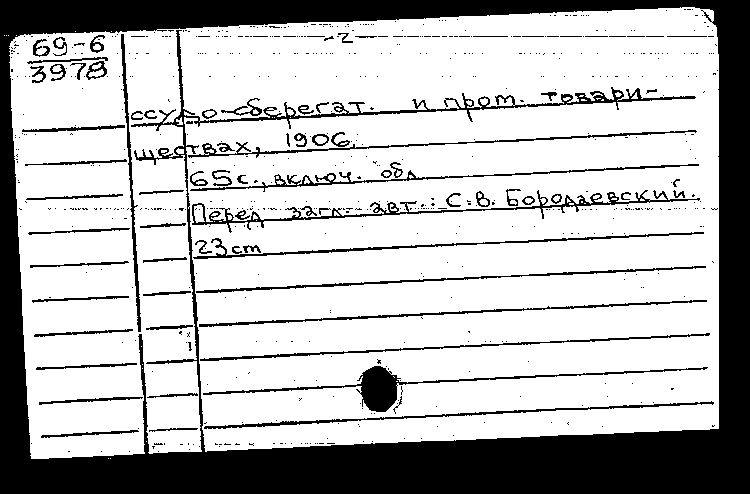 69-6
3978
-2-
ссудо-сберегат. и пром. товари-
ществах, 1906.
65 с., включ. обл.
Перед загл. авт.: С.В. Бородаевский.
23 cm